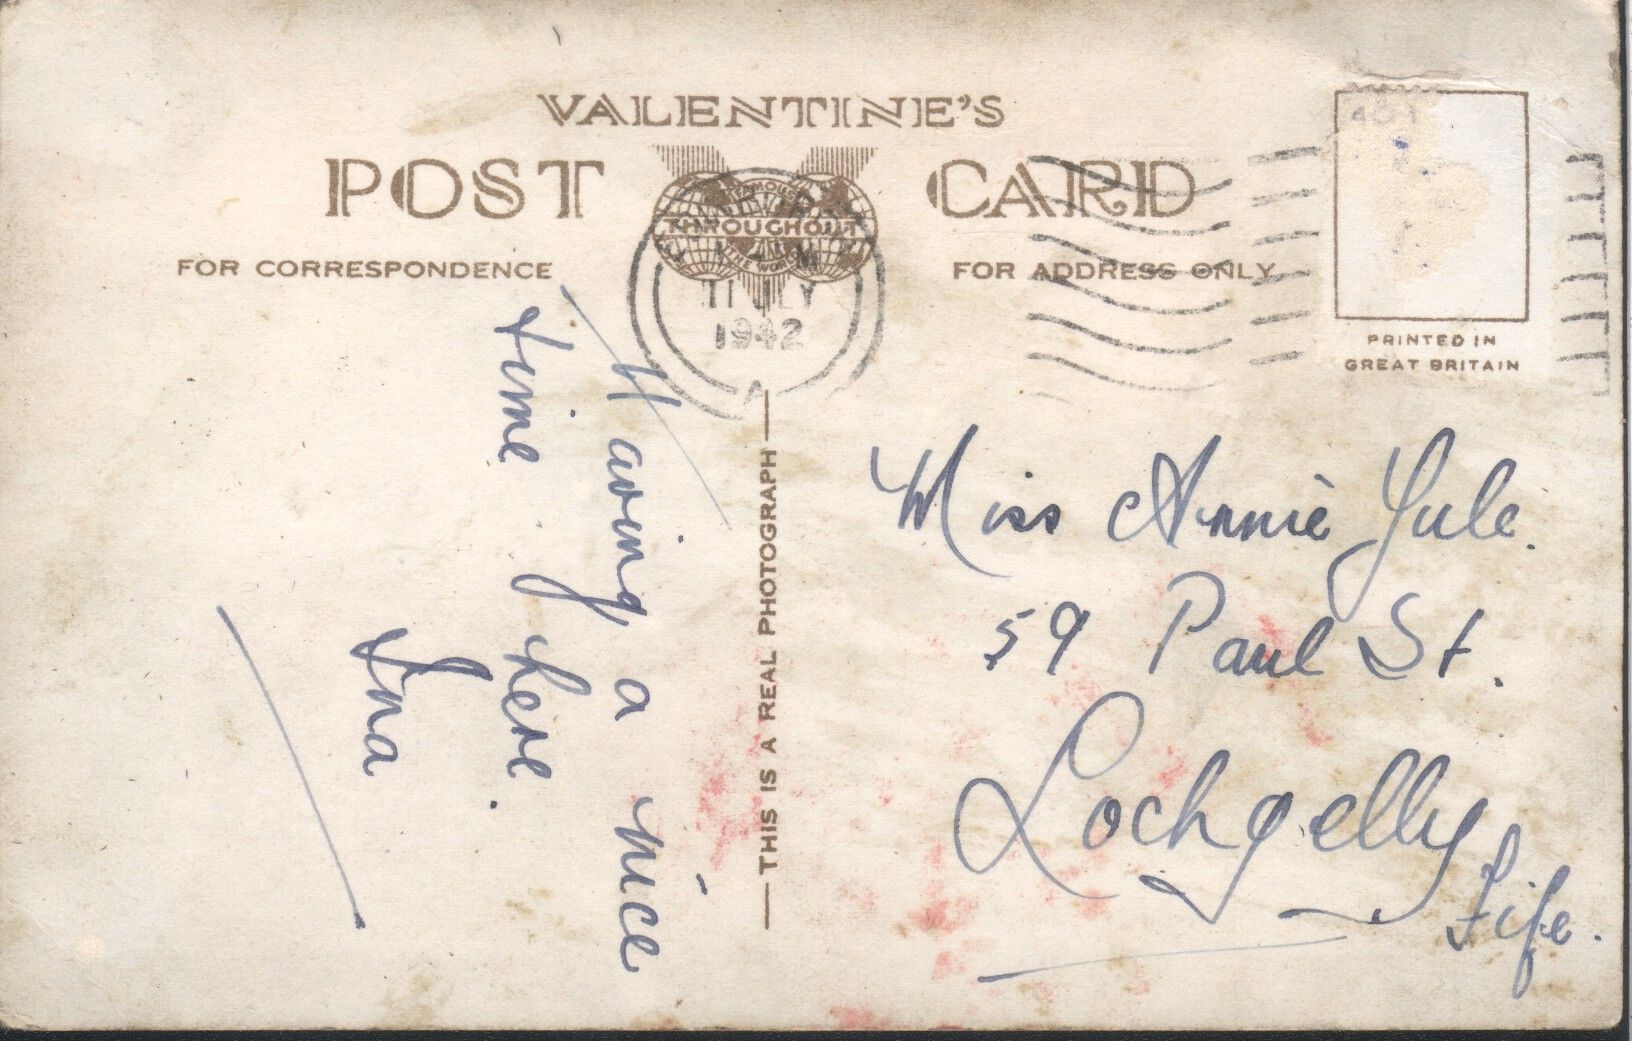 VALENTINE'S
POST CARD
FAMOUS
THROUGHOUT
THE WORLD
FOR CORRESPONDENCE
FOR ADDRESS ONLY
11 JLY
1942
PRINTED IN
GREAT BRITAIN
Having a nice
time here.
Ina
THIS IS A REAL PHOTOGRAPH
Miss Annie Yule.
59 Paul St.
Lochgelly
Fife.